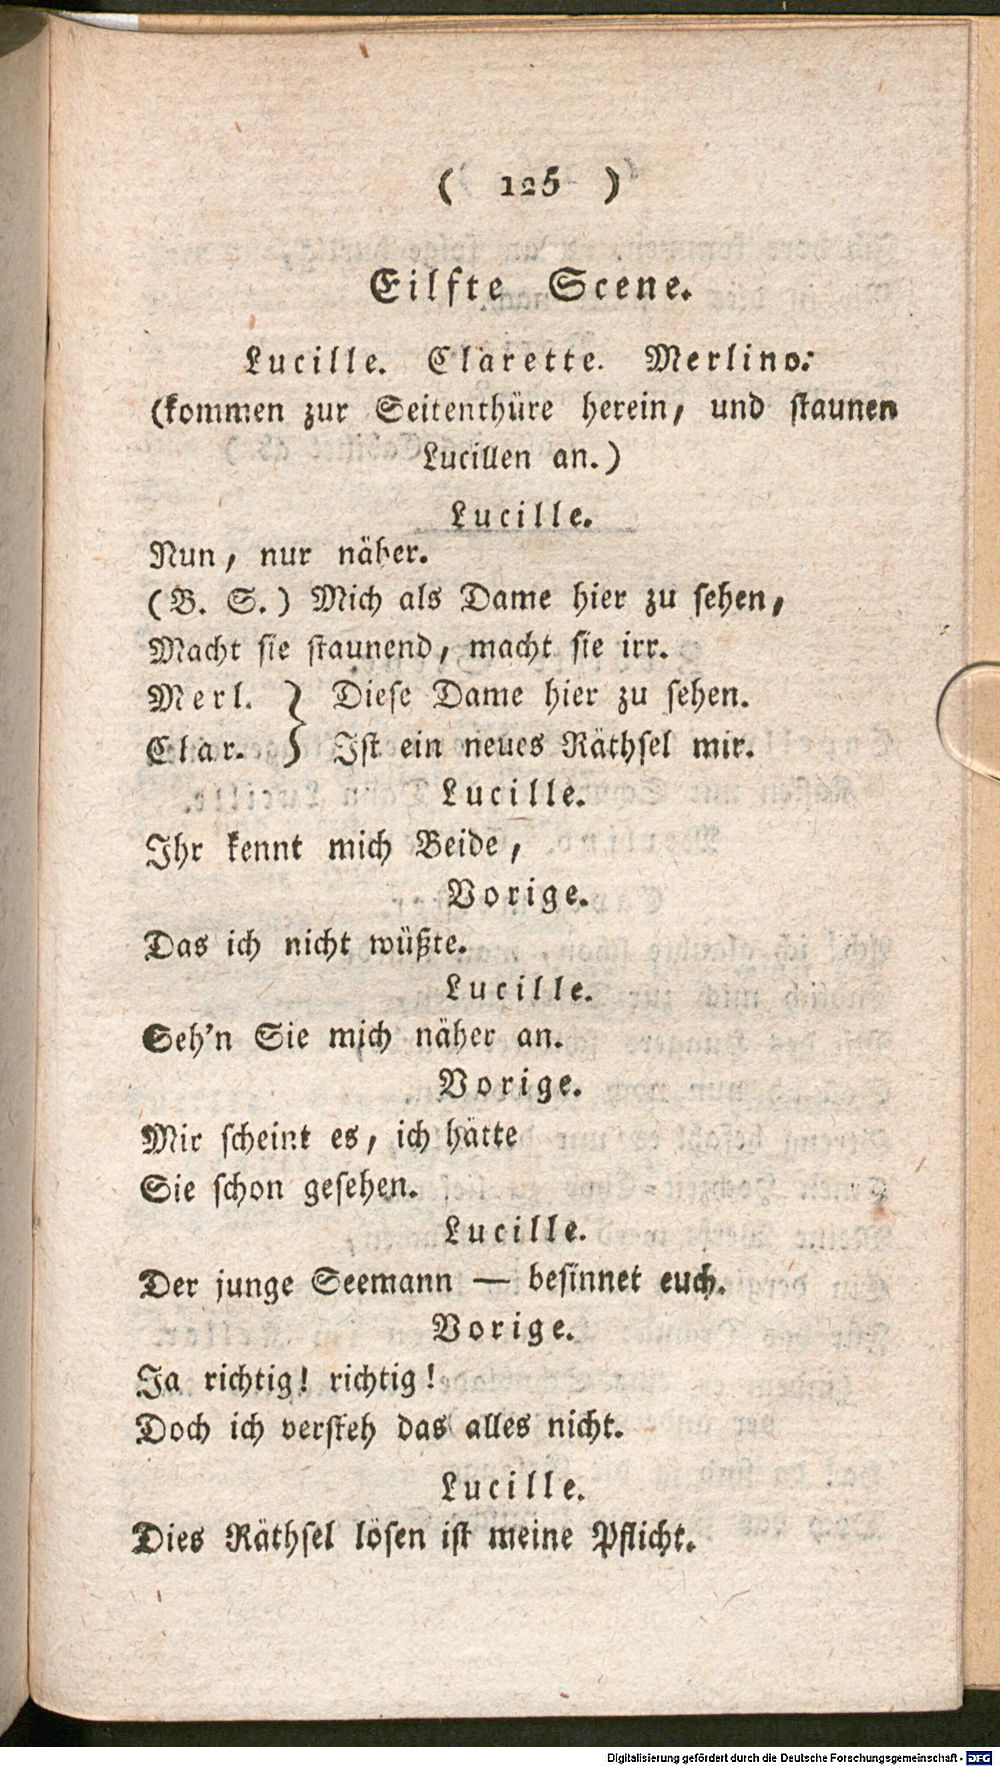 ( 125 )
Eilfte Scene.
Lucille. Clarette. Merlino.
(kommen zur Seitenthüre herein, und staunen
Lucillen an.)
Lucille.
Nun, nur näher.
(B. S.) Mich als Dame hier zu sehen,
Macht sie staunend, macht sie irr.
Merl. } Diese Dame hier zu sehen.
Clar. } Ist ein neues Räthsel mir.
Lucille.
Ihr kennt mich Beide,
Vorige.
Das ich nicht wüßte.
Lucille.
Seh'n Sie mich näher an.
Vorige.
Mir scheint es, ich hätte
Sie schon gesehen.
Lucille.
Der junge Seemann — besinnet euch.
Vorige.
Ja richtig! richtig!
Doch ich versteh das alles nicht.
Lucille.
Dies Räthsel lösen ist meine Pflicht.
Digitalisierung gefördert durch die Deutsche Forschungsgemeinschaft - DFG